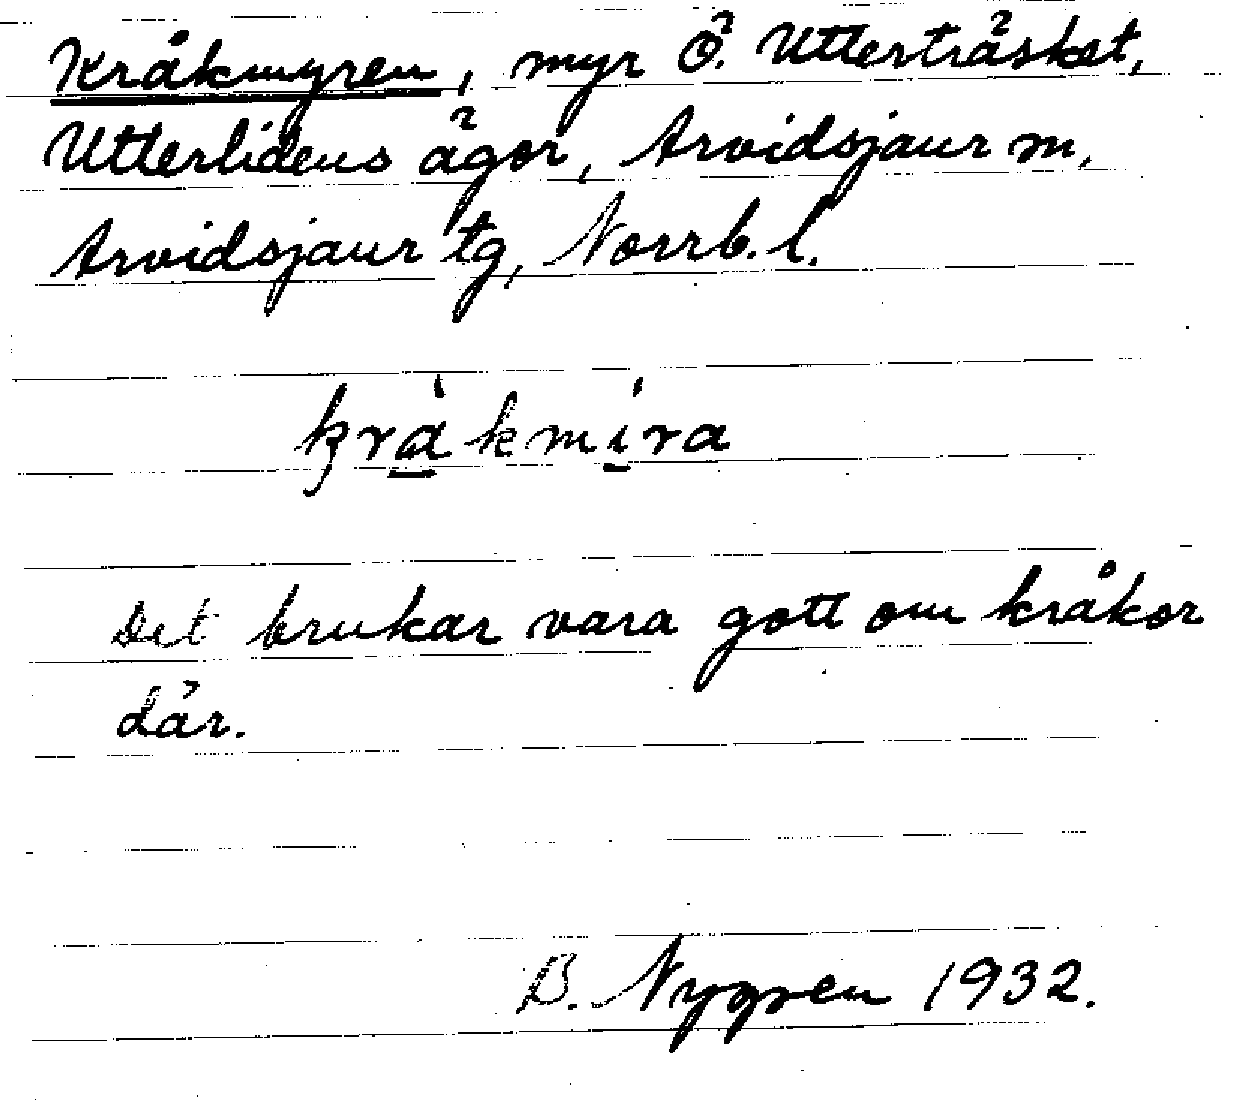 Kråkmyren, myr Ö. Utterträsket,
Utterlidens ägor, Arvidsjaur m,
Arvidsjaur tg, Norrb. l.
kràkmíra
Det brukar vara gott om kråkor
där.
B. Nygren 1932.